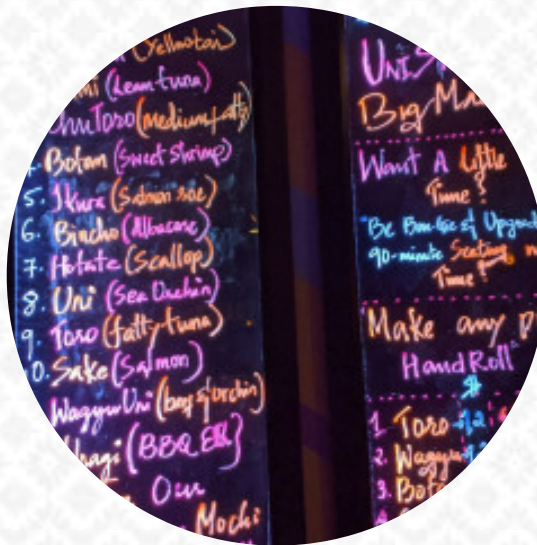 (Yellowtail)
(Lean tuna)
ChuToro (medium fatty)
Botan (Sweet Shrimp)
5. Ikura (Salmon roe)
6. Bincho (Albacore)
7. Hotate (Scallop)
8. Uni (Sea Urchin)
9. Toro (fatty tuna)
0. Sake (Salmon)
Wagyu Uni (beef & urchin)
(BBQ Eel)
Our
Mochi
Big
Want A Little
Time?
90-minute Seating
Time?
Make any
Hand Roll
$
1 Toro
2. Wagyu
3.